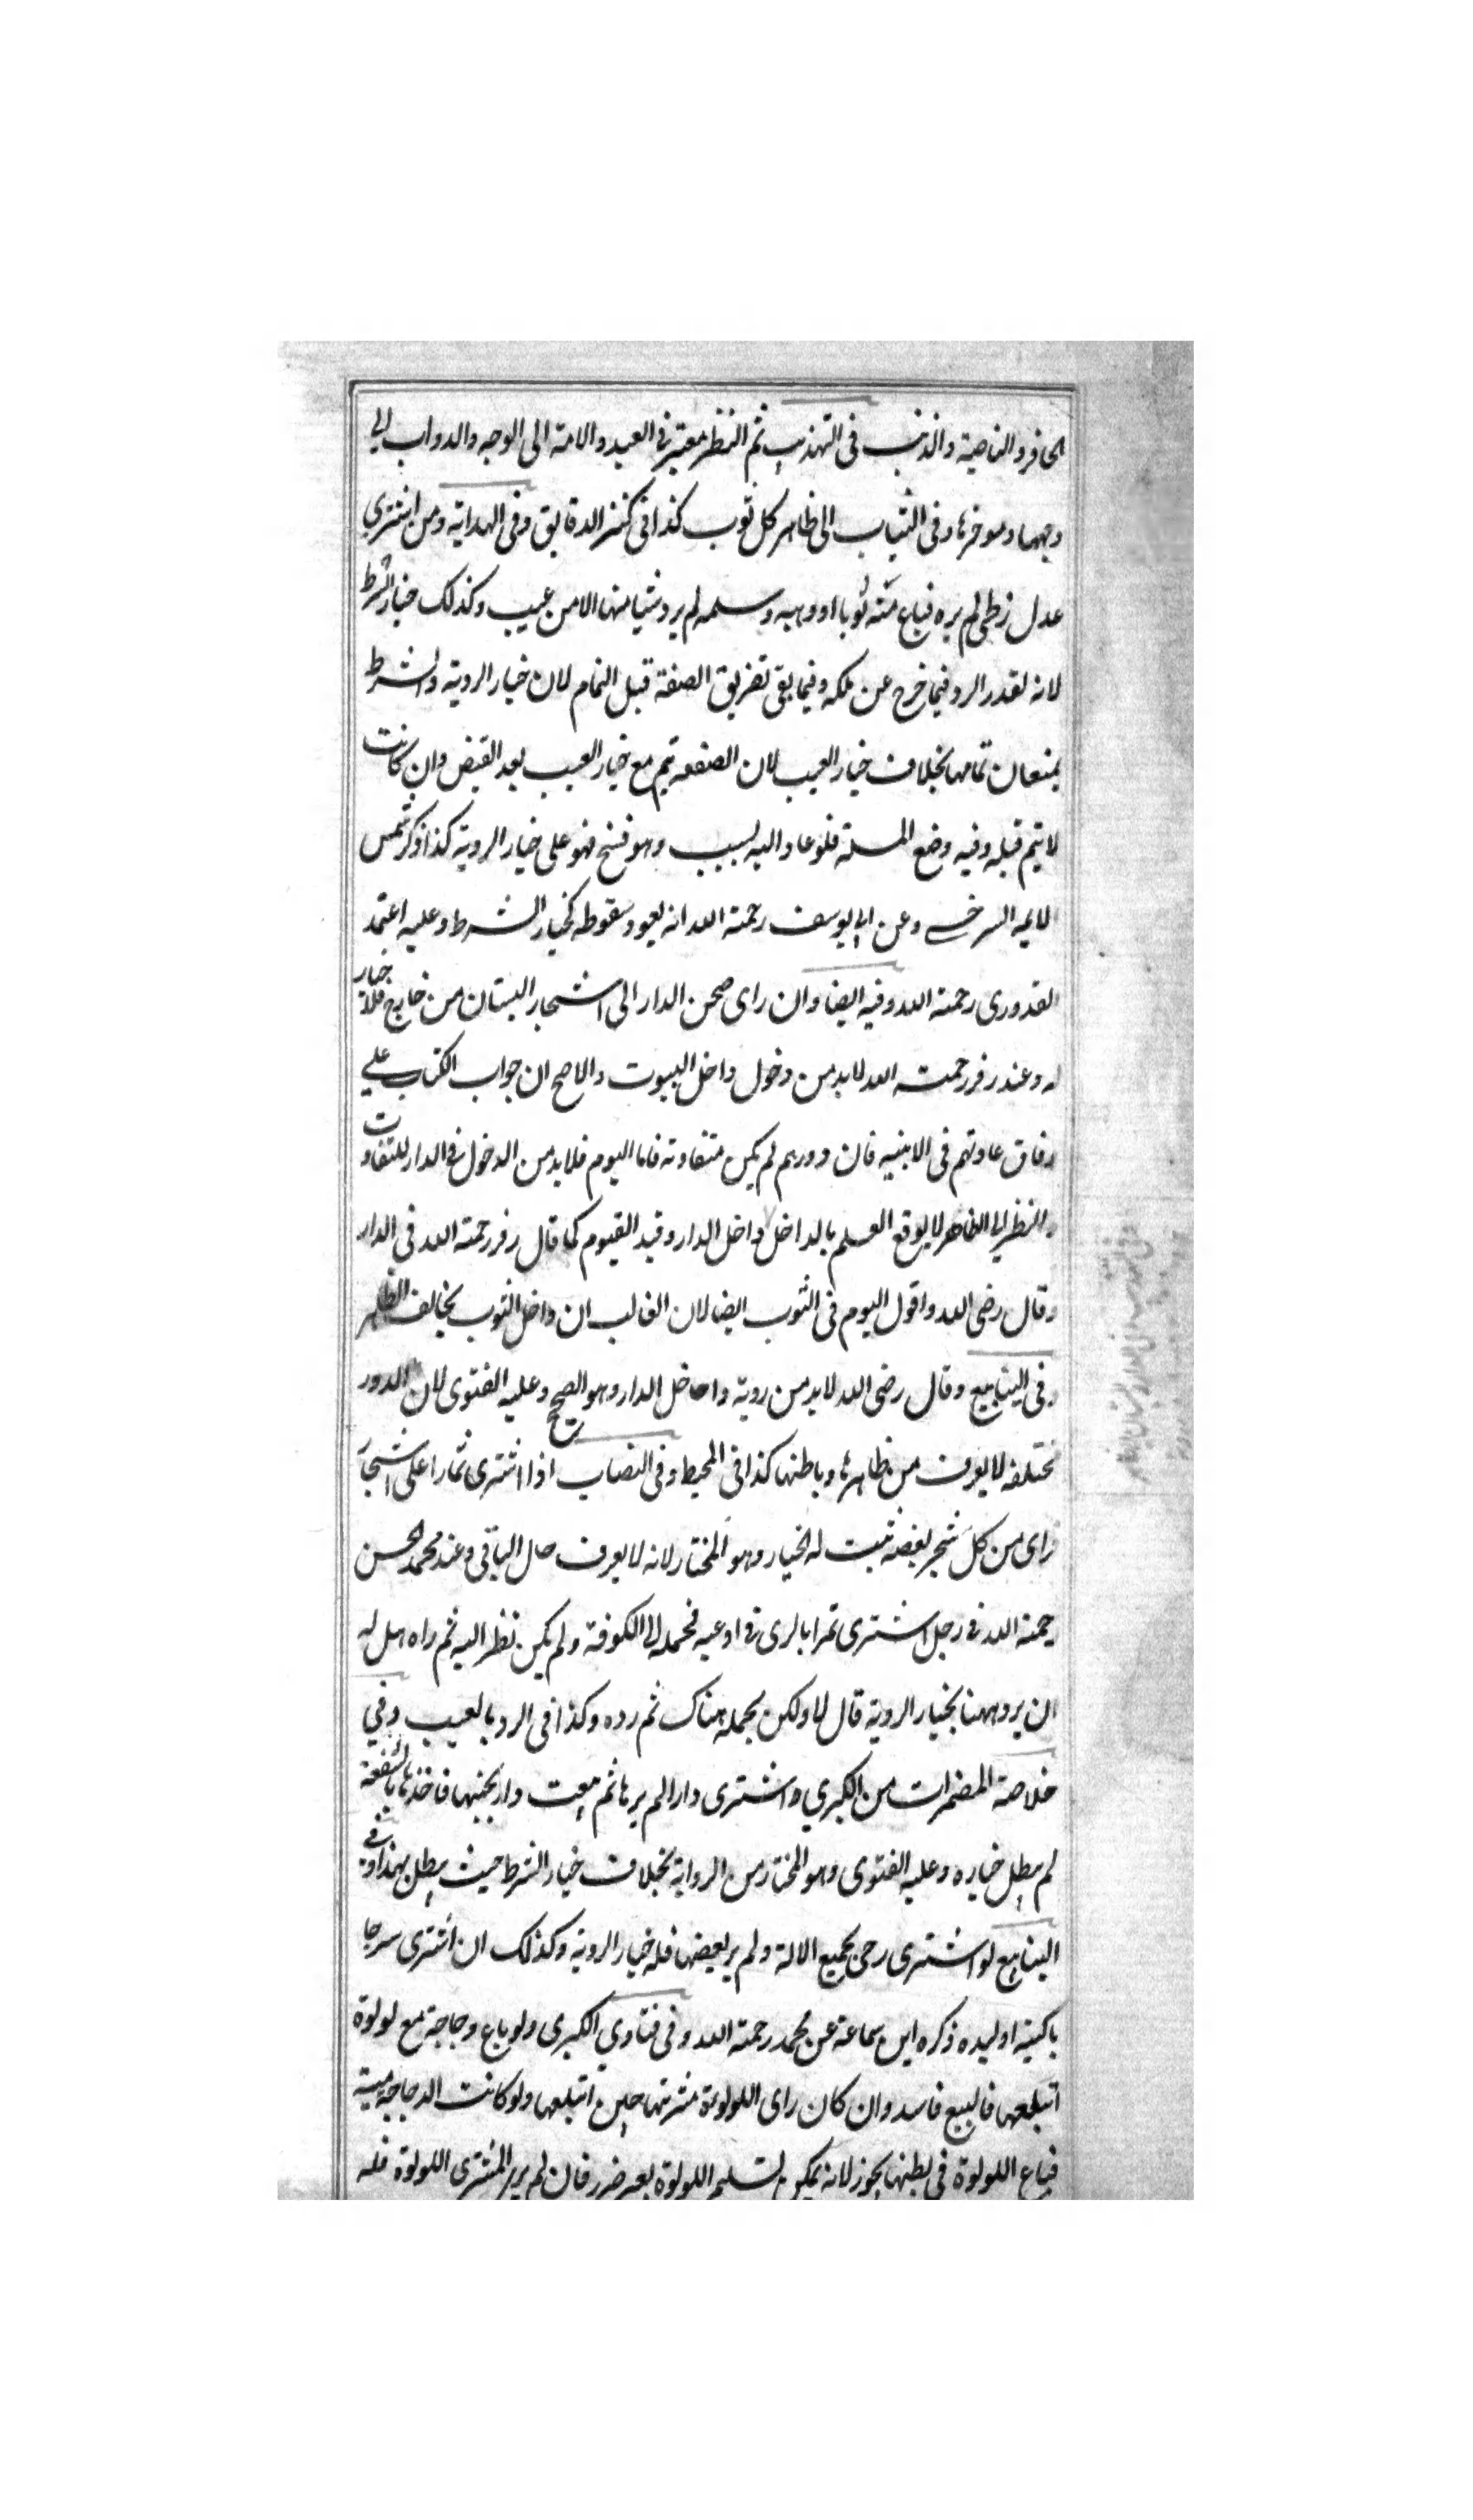 الحافر والناصية والذنب فى التهذيب ثم النظر معتبر فى العبد والامة الى الوجه والدواب الى
وجهها وموخرها وفى الثياب الى ظاهر كل ثوب كذا فى كنز الدقايق وفى الهداية ومن اشترى
عدل زطى لم يره فباع منه ثوبا او وهبه وسلمه لم يرد شيا منها الا من عيب وكذلك خيار الشرط
لانه تعذر الرد فيما خرج عن ملكه وفيما بقى تفريق الصفقة قبل التمام لان خيار الروية والشرط
يمنعان تمامها بخلاف خيار العيب لان الصفقه تتم مع خيار العيب بعد القبض وان كانت
لا تتم قبله وفيه وضع المسلة فلو عاد اليه بسبب وهو فسخ فهو على خيار الروية كذا ذكر شمس
الايمه السرخسى وعن ابى يوسف رحمة الله انه لا يعود سقوطه كخيار الشرط وعليه اعتمد
القدورى رحمة الله وفيه ايضا وان راى صحن الدار الى اشجار البستان من خارج فلا خيار
له وعند زفر رحمة الله لا بد من دخول داخل البيوت والاصح ان جواب الكتاب على
وفاق عادتهم فى الابنيه فان دورهم لم يكن متفاوته فاما اليوم فلا بد من الدخول فى الدار للتفاوت
والنظر الى الظاهر لا يوقع العلم بالداخل داخل الدار وقيد القيوم كما قال زفر رحمة الله فى الدار
وقال رضى الله واقول اليوم فى الثوب ايضا لان الغالب ان داخل الثوب يخالف الظاهر
وفى الينابيع وقال رضى الله لا بد من روية داخل الدار وهو الصحيح وعليه الفتوى لان الدور
مختلفه لا يعرف من ظاهرها وباطنها كذا فى المحيط وفى النصاب اذا اشترى ثمارا على اشجار
فراى من كل شجر بعضه ثبت له الخيار وهو المختار لانه لا يعرف حال الباقى وعند محمد الحسن
رحمة الله فى رجل اشترى تمرا بالرى فى اوعيه فحمله الى الكوفة ولم يكن نظر اليه ثم راه هل له
ان يرد ههنا بخيار الروية قال لا ولكن يحمله هناك ثم رده وكذا فى الرد بالعيب وفى
خلاصة المضمرات من الكبرى واشترى دارا لم يرها ثم بيعت دار بجنبها فاخذها بالشفعة
لم يبطل خياره وعليه الفتوى وهو المختار من الرواية بخلاف خيار الشرط حيث يبطل بهذا وفى
الينابيع لو اشترى رحى بجميع الالة ولم ير بعضها فله خيار الروية وكذلك ان اشترى سرجا
باكيته او لبده ذكره ابن سماعة عن محمد رحمة الله وفى فتاوى الكبرى ولو باع دجاجة مع لولوة
ابتلعها فالبيع فاسد وان كان راى اللولوة مشريتها حين ابتلعها ولو كانت الدجاجة ميتة
فباع اللولوة فى بطنها يجوز لانه يمكن تسليم اللولوة بغير ضرر فان لم ير المشترى اللولوة فله